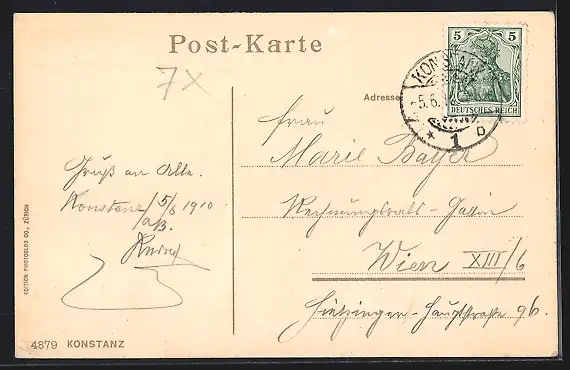 Post-Karte
7X
5 5
DEUTSCHES REICH
KONSTANZ
5.6.
* 1 b
Adresse
Frau
Marie Bayer
Rechnungsrats-Gattin
Wien XIII/6
Hietzinger-Hauptstraße 96.
Gruß an Alle.
Konstanz 5/6 1910
a/B.
EDITION PHOTOGLOB CO., ZÜRICH
4879 KONSTANZ